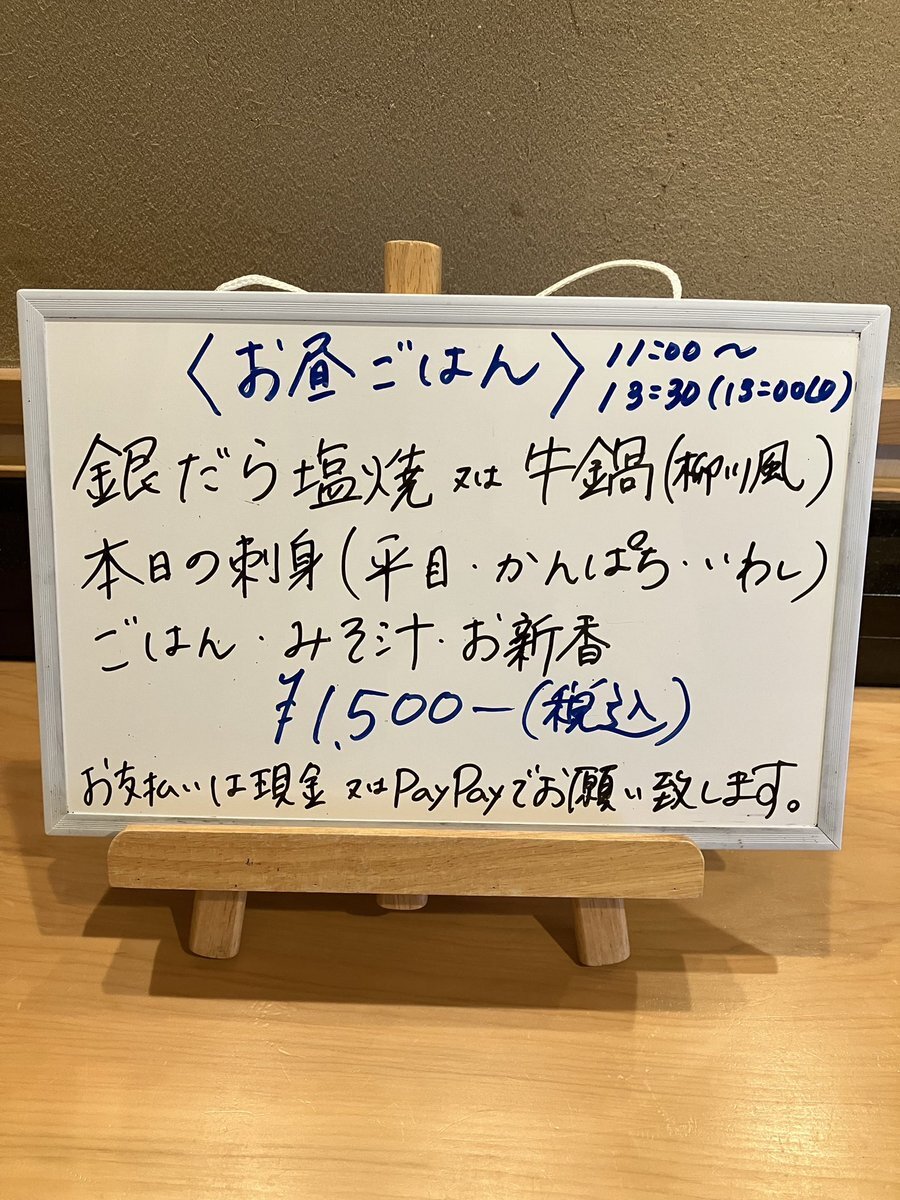 〈お昼ごはん〉11:00〜
13:30(13:00LO)
銀だら塩焼 又は 牛鍋(柳川風)
本日の刺身(平目・かんぱち・いわし)
ごはん・みそ汁・お新香
¥1,500-(税込)
お支払いは現金 又はPayPayでお願い致します。